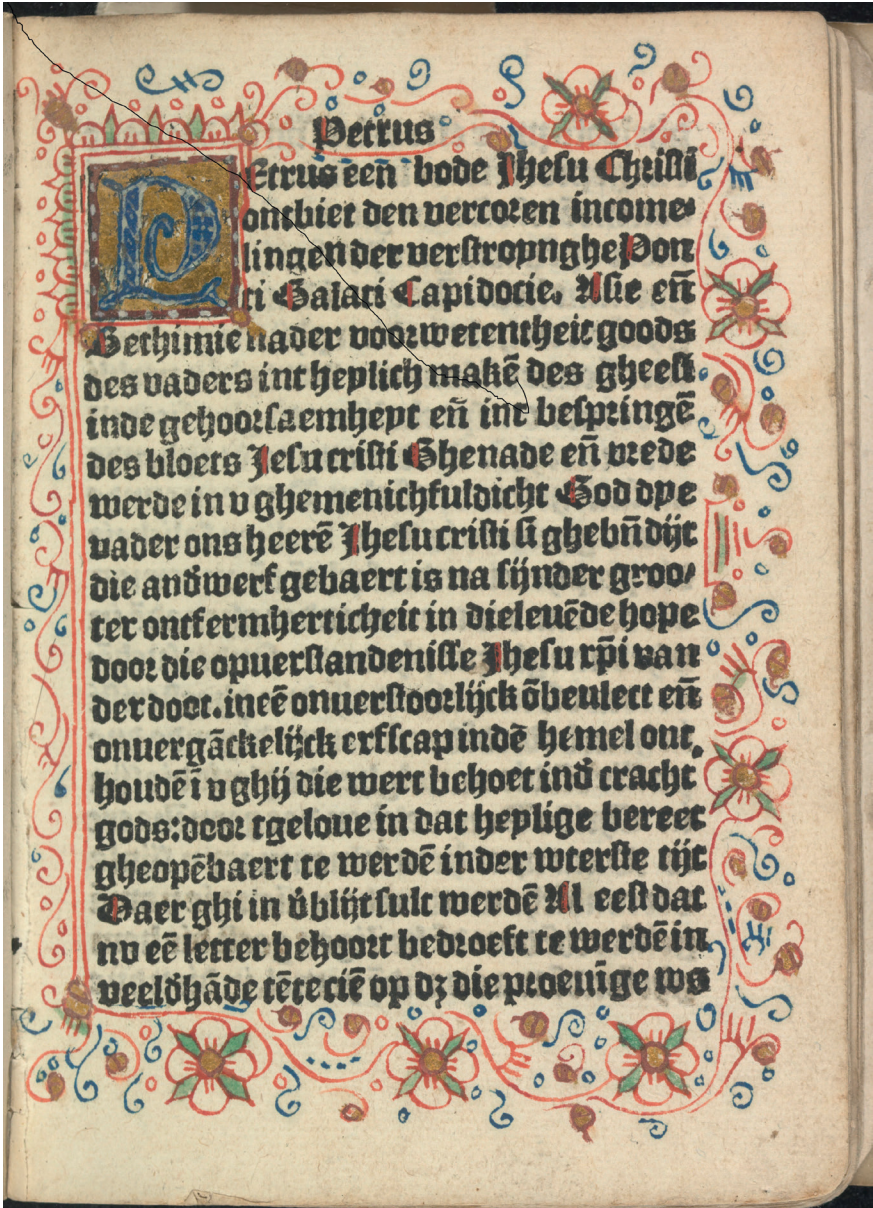 Petrus
PEtrus een̄ bode Jhesu Christi
ombiet den vercoren income-
lingen der verstroynghe Pon
ti Galati Capidocie. Asie en̄
Bethimie nader voorwetentheit goods
des vaders int heylich makē des gheest
inde gehoorsaemheyt en̄ int bespringē
des bloets Jesu cristi Ghenade en̄ vrede
werde in v ghemenichfuldicht God dye
vader ons heerē Jhesu cristi si ghebn̄dijt
die andwerf gebaert is na sijnder groo/
ter ontfermherticheit in die leuēde hope
door die opuerstandenisse Jhesu xp̄i van
der doot. in eē onuerstoorlijck ōbeulect en̄
onuergāckelijck erfscap indē hemel ont
houdē ī v ghij die wert behoet ind̄ cracht
gods: door tgeloue in dat heylige bereet
gheopēbaert te werdē inder wterste tijt
Daer ghi in v̄blijt sult werdē Al eest dat
nv eē letter behoort bedroeft te werdē in
veeld̄hāde tēteciē op dꝫ die proeuīge ws